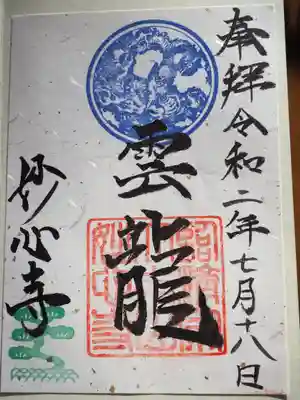 奉拝令和二年七月十八日
雲龍
妙心寺